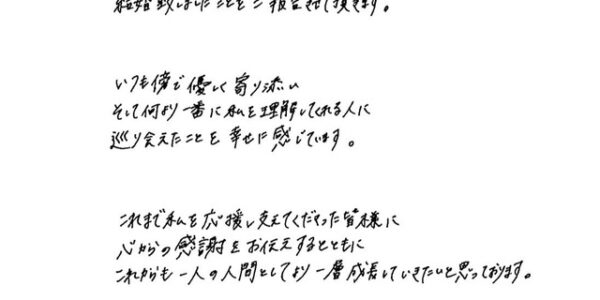 結婚致しましたことをご報告させて頂きます。
いつも傍で優しく寄り添い
そして何より一番に私を理解してくれる人に
巡り会えたことを幸せに感じています。
これまで私を応援し支えてくださった皆様に
心からの感謝をお伝えするとともに
これからも一人の人間としてより一層成長していきたいと思っております。